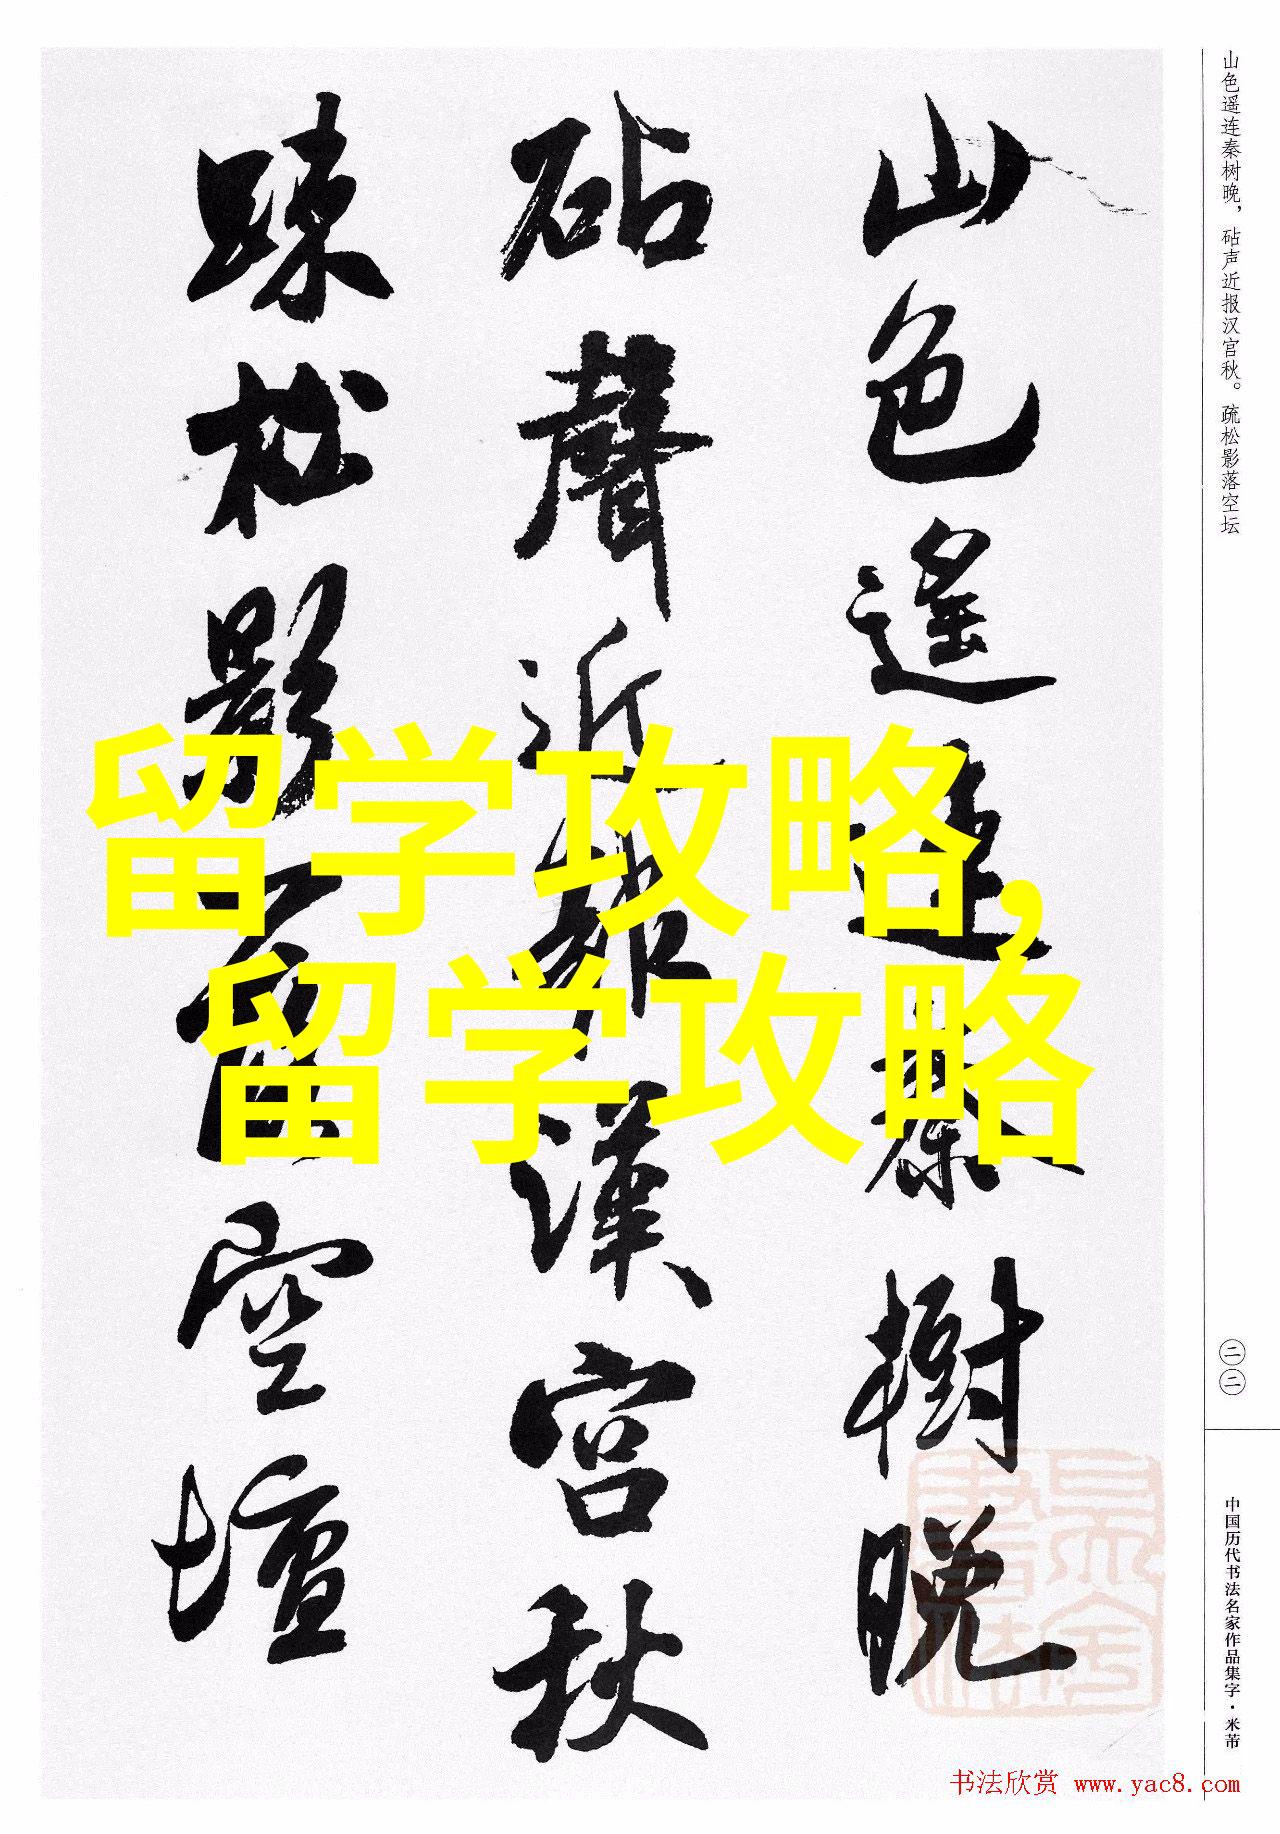 山色遥连秦树晚，砧声近报汉宫秋。疏松影落空坛
山色遥連秦樹晚
砧聲近報漢宫秋
踈松影落空壇
留学攻略，
留学攻略
二二
中国历代书法名家作品集字·米芾
书法欣赏 www.yac8.com